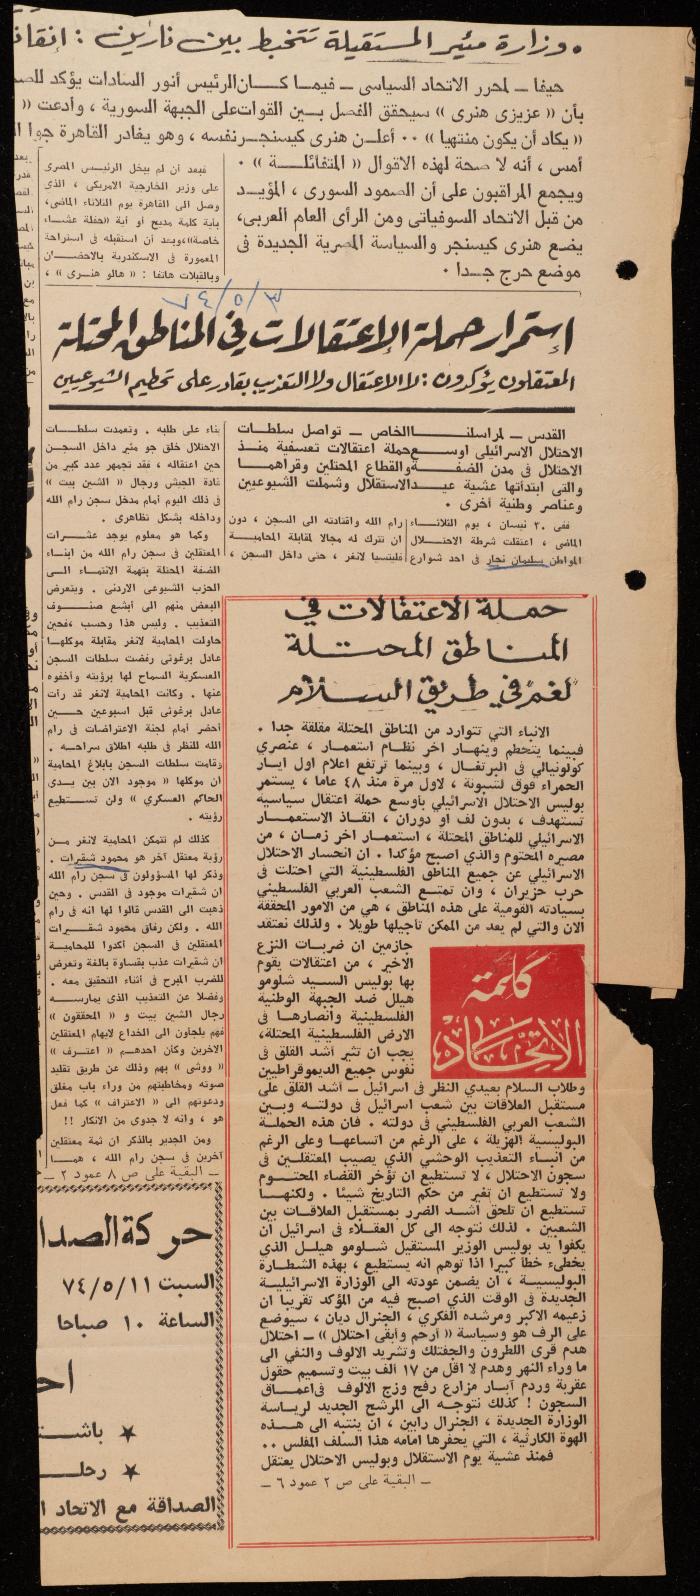 • وزارة مئير المستقيلة تتخبط بين نارين : انقاذ
حيفا – لمحرر الاتحاد السياسي – فيما كان الرئيس أنور السادات يؤكد
بأن « عزيزى هنرى » سيحقق الفصل بين القوات على الجبهة السورية ، وأدعت «
« يكاد أن يكون منتهيا » ٠٠ أعلن هنرى كيسنجر نفسه ، وهو يغادر القاهرة جوا
أمس ، أنه لا صحة لهذه الاقوال « المتفائلة » ٠
ويجمع المراقبون على أن الصمود السورى ، المؤيد
من قبل الاتحاد السوفياتى ومن الرأى العام العربى،
يضع هنرى كيسنجر والسياسة المصرية الجديدة فى
موضع حرج جدا ٠
فبعد أن لم يبخل الرئيس المصرى
على وزير الخارجية الامريكى ، الذى
وصل الى القاهرة يوم الثلاثاء الماضى،
بأية كلمة مديح أو أية «حفلة عشاء
خاصة»،وبعد أن استقبله فى استراحة
المعمورة فى الاسكندرية بالاحضان
وبالقبلات هاتفا : « هالو هنرى » ،
٧٤/٥/٣
إستمرار حملة الإعتقالات في المناطق المحتلة
المعتقلون يؤكدون : لا الاعتقال ولا التعذيب بقادر على تحطيم الشيوعيين
القدس – لمراسلنا الخاص – تواصل سلطات
الاحتلال الاسرائيلى اوسع حملة اعتقالات تعسفية منذ
الاحتلال فى مدن الضفة والقطاع المحتلين وقراهما
والتى ابتدأتها عشية عيد الاستقلال وشملت الشيوعيين
وعناصر وطنية أخرى ٠
ففى ٢٠ نيسان ، يوم الثلاثاء
الماضى ، اعتقلت شرطة الاحتلال
المواطن سليمان نجار فى احد شوارع
رام الله واقتادته الى السجن ، دون
ان تترك له مجالا لمقابلة المحامية
فليتسيا لانغر ، حتى داخل السجن ،
بناء على طلبه . وتعمدت سلطات
الاحتلال خلق جو مثير داخل السجن
حين اعتقاله ، فقد تجمهر عدد كبير من
قادة الجيش ورجال « الشين بيت »
فى ذلك اليوم أمام مدخل سجن رام الله
وداخله بشكل تظاهرى .
وكما هو معلوم يوجد عشرات
المعتقلين فى سجن رام الله من ابناء
الضفة المحتلة بتهمة الانتماء الى
الحزب الشيوعى الاردنى . ويتعرض
البعض منهم الى أبشع صنوف
التعذيب . وليس هذا وحسب ،فحين
حاولت المحامية لانغر مقابلة موكلها
عادل برغوتى رفضت سلطات السجن
العسكرية السماح لها برؤيته وأخفوه
عنها . وكانت المحامية لانغر قد رأت
عادل برغوتى قبل اسبوعين حين
أحضر أمام لجنة الاعتراضات فى رام
الله للنظر فى طلبه اطلاق سراحه .
وقامت سلطات السجن بابلاغ المحامية
ان موكلها « موجود الان بين يدى
الحاكم العسكرى » ولن تستطيع
رؤيته .
كذلك لم تتمكن المحامية لانغر من
رؤية معتقل آخر هو محمود شقيرات .
وذكر لها المسؤولون فى سجن رام الله
ان شقيرات موجود فى القدس . وحين
ذهبت الى القدس قالوا لها انه فى رام
الله . ولكن رفاق محمود شقيرات
المعتقلين فى السجن أكدوا للمحامية
ان شقيرات عذب بقساوة بالغة وتعرض
للضرب المبرح فى أثناء التحقيق معه .
وفضلا عن التعذيب الذى يمارسه
رجال الشين بيت و « المحققون »
فهم يلجأون الى الخداع لايهام المعتقلين
الاخرين وكأن احدهم « اعترف »
« ووشى » بهم وذلك عن طريق تقليد
صوته ومخاطبتهم من وراء باب مغلق
ودعوتهم الى « الاعتراف » كما فعل
هو ، وانه لا جدوى من الانكار !!
ومن الجدير بالذكر ان ثمة معتقلين
آخرين فى سجن رام الله ، هما
– البقية على ص ٨ عمود ٢ –
حملة الاعتقالات في
المناطق المحتلة
لغم في طريق السلام
الانباء التي تتوارد من المناطق المحتلة مقلقة جدا .
فبينما يتحطم وينهار اخر نظام استعمار ، عنصري
كولونيالي في البرتغال ، وبينما ترتفع اعلام اول ايار
الحمراء فوق لشبونة ، لاول مرة منذ ٤٨ عاما ، يستمر
بوليس الاحتلال الاسرائيلي بأوسع حملة اعتقال سياسية
تستهدف ، بدون لف او دوران ، انقاذ الاستعمار
الاسرائيلي للمناطق المحتلة ، استعمار اخر زمان ، من
مصيره المحتوم والذي اصبح مؤكدا . ان انحسار الاحتلال
الاسرائيلي عن جميع المناطق الفلسطينية التي احتلت في
حرب حزيران ، وان تمتع الشعب العربي الفلسطيني
بسيادته القومية على هذه المناطق ، هي من الامور المحققة
الان والتي لم يعد من الممكن تأجيلها طويلا . ولذلك نعتقد
كلمة
الاتحاد
جازمين ان ضربات النزع
الاخير ، من اعتقالات يقوم
بها بوليس السيد شلومو
هيلل ضد الجبهة الوطنية
الفلسطينية وانصارها في
الارض الفلسطينية المحتلة،
يجب ان تثير أشد القلق في
نفوس جميع الديموقراطيين
وطلاب السلام بعيدي النظر في اسرائيل – أشد القلق على
مستقبل العلاقات بين شعب اسرائيل في دولته وبين
الشعب العربي الفلسطيني في دولته . فان هذه الحملة
البوليسية الهزيلة ، على الرغم من اتساعها وعلى الرغم
من أنباء التعذيب الوحشي الذي يصيب المعتقلين في
سجون الاحتلال ، لا تستطيع ان تؤخر القضاء المحتوم
ولا تستطيع ان تغير من حكم التاريخ شيئا . ولكنها
تستطيع ان تلحق أشد الضرر بمستقبل العلاقات بين
الشعبين . لذلك نتوجه الى كل العقلاء في اسرائيل ان
يكفوا يد بوليس الوزير المستقيل شلومو هيلل الذي
يخطىء خطأ كبيرا اذا توهم انه يستطيع ، بهذه الشطارة
البوليسية ، ان يضمن عودته الى الوزارة الاسرائيلية
الجديدة في الوقت الذي اصبح فيه من المؤكد تقريبا ان
زعيمه الاكبر ومرشده الفكري ، الجنرال ديان ، سيوضع
على الرف هو وسياسة « أرحم وأبقى احتلال » – احتلال
هدم قرى اللطرون والجفتلك وتشريد الالوف والنفي الى
ما وراء النهر وهدم لا اقل من ١٧ الف بيت وتسميم حقول
عقربة وردم آبار مزارع رفح وزج الالوف في اعماق
السجون ! كذلك نتوجه الى المرشح الجديد لرياسة
الوزارة الجديدة ، الجنرال رابين ، ان ينتبه الى هذه
الهوة الكارثية ، التي يحفرها امامه هذا السلف المفلس ٠٠
فمنذ عشية يوم الاستقلال وبوليس الاحتلال يعتقل
– البقية على ص ٢ عمود ٦ –
حركة الصدا
السبت ٧٤/٥/١١
الساعة ١٠ صباحا
اح
★ باشت
★ رحلـ
الصداقة مع الاتحاد ا